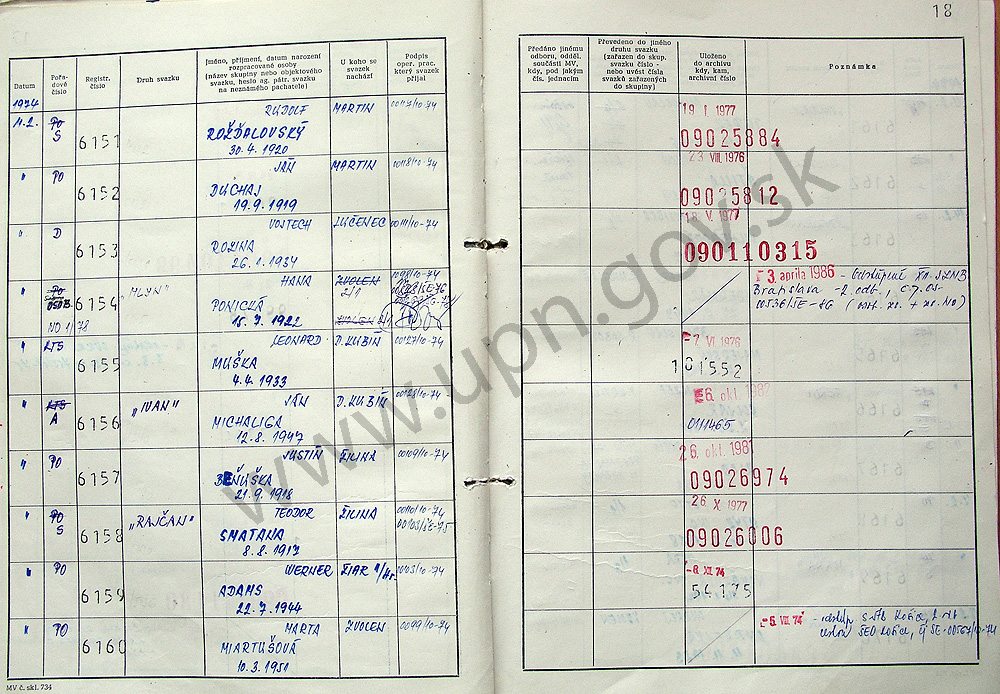 18
Datum
Pořa-
dové
číslo
Registr.
číslo
Druh svazku
Jméno, příjmení, datum narození
rozpracované osoby
(název skupiny nebo objektového
svazku, heslo ag. pátr. svazku
na neznámého pachatele)
U koho se
svazek
nachází
Podpis
oper. prac.
který svazek
přijal
Předáno jinému
odboru, odděl.
součásti MV,
kdy, pod jakým
čís. jednacím
Převedeno do jiného
druhu svazku
(zařazen do skup.
svazku číslo -
nebo uvést čísla
svazků zařazených
do skupiny)
Uloženo
do archivu
kdy, kam,
archivní číslo
Poznámka
1974
11.2. PO S 6151 RUDOLF MARTIN 00117/10-74 19 I. 1977
ROŽĎALOVSKÝ 09025884
30.4.1920
" PO 6152 JÁN MARTIN 00118/10-74 23 VIII. 1976
DUCHAJ 09025812
19.9.1919
" D 6153 VOJTECH LUČENEC 00111/10-74 18 V. 1977
ROZINA 090110315
26.1.1934
" PO 6154 "MLYN" HANA ZVOLEN 0098/10-74 3. apríla 1986 - Odstúpené XII. SZNB
PONICKÁ Bratislava - 2. odb., č.j. OS-
NO 1/78 15.7.1922 ZVOLEN 00536/SE-86
" KTS 6155 LEONARD D. KUBÍN 00127/10-74 -7 VI 1976
MUŠKA 101552
4.4.1933
" KTS A 6156 "IVAN" JÁN D. KUBÍN 00128/10-74 6. okt.
MICHALIGA 0111465
12.8.1947
" PO 6157 JUSTÍN ŽILINA 00109/10-74 26. okt. 1981
BEŇUŠKA 09026974
21.9.1918
" PO S 6158 "RAJČAN" TEODOR ŽILINA 00110/10-74 26. X. 1977
SMATANA 00103/SE-75 09026006
8.8.1917
" PO 6159 WERNER ŽIAR n/Hr. 00103/10-74 -6 XII. 74
ADAMS 54175
22.7.1944
" PO 6160 MARTA ZVOLEN 0099/10-74 -5. VIII. 74 - odstúp
MIARTUŠOVÁ
10.3.1951
MV č. skl. 734
www.upn.gov.sk